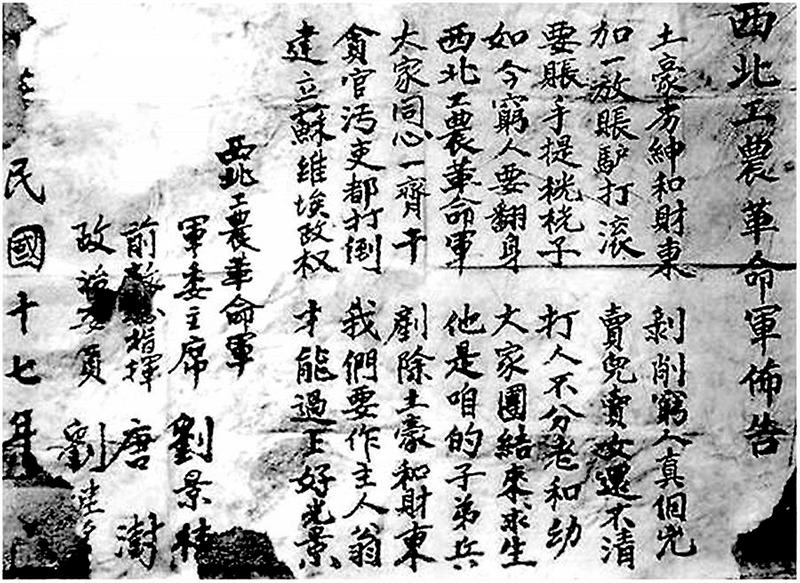 西北工農革命軍佈告
土豪劣紳和財東 剝削窮人真個兇
加一放賬驴打滚 賣兒賣女還不清
要賬手提桄桄子 打人不分老和幼
如今窮人要翻身 大家團結來求生
西北工農革命軍 他是咱的子弟兵
大家同心一齊干 剷除土豪和財東
貪官污吏都打倒 我們要作主人翁
建立蘇維埃政权 才能過上好光景
西北工農革命軍
軍委主席 劉景桂
前敵總指揮 唐澍
政治委員 劉
民國十七年